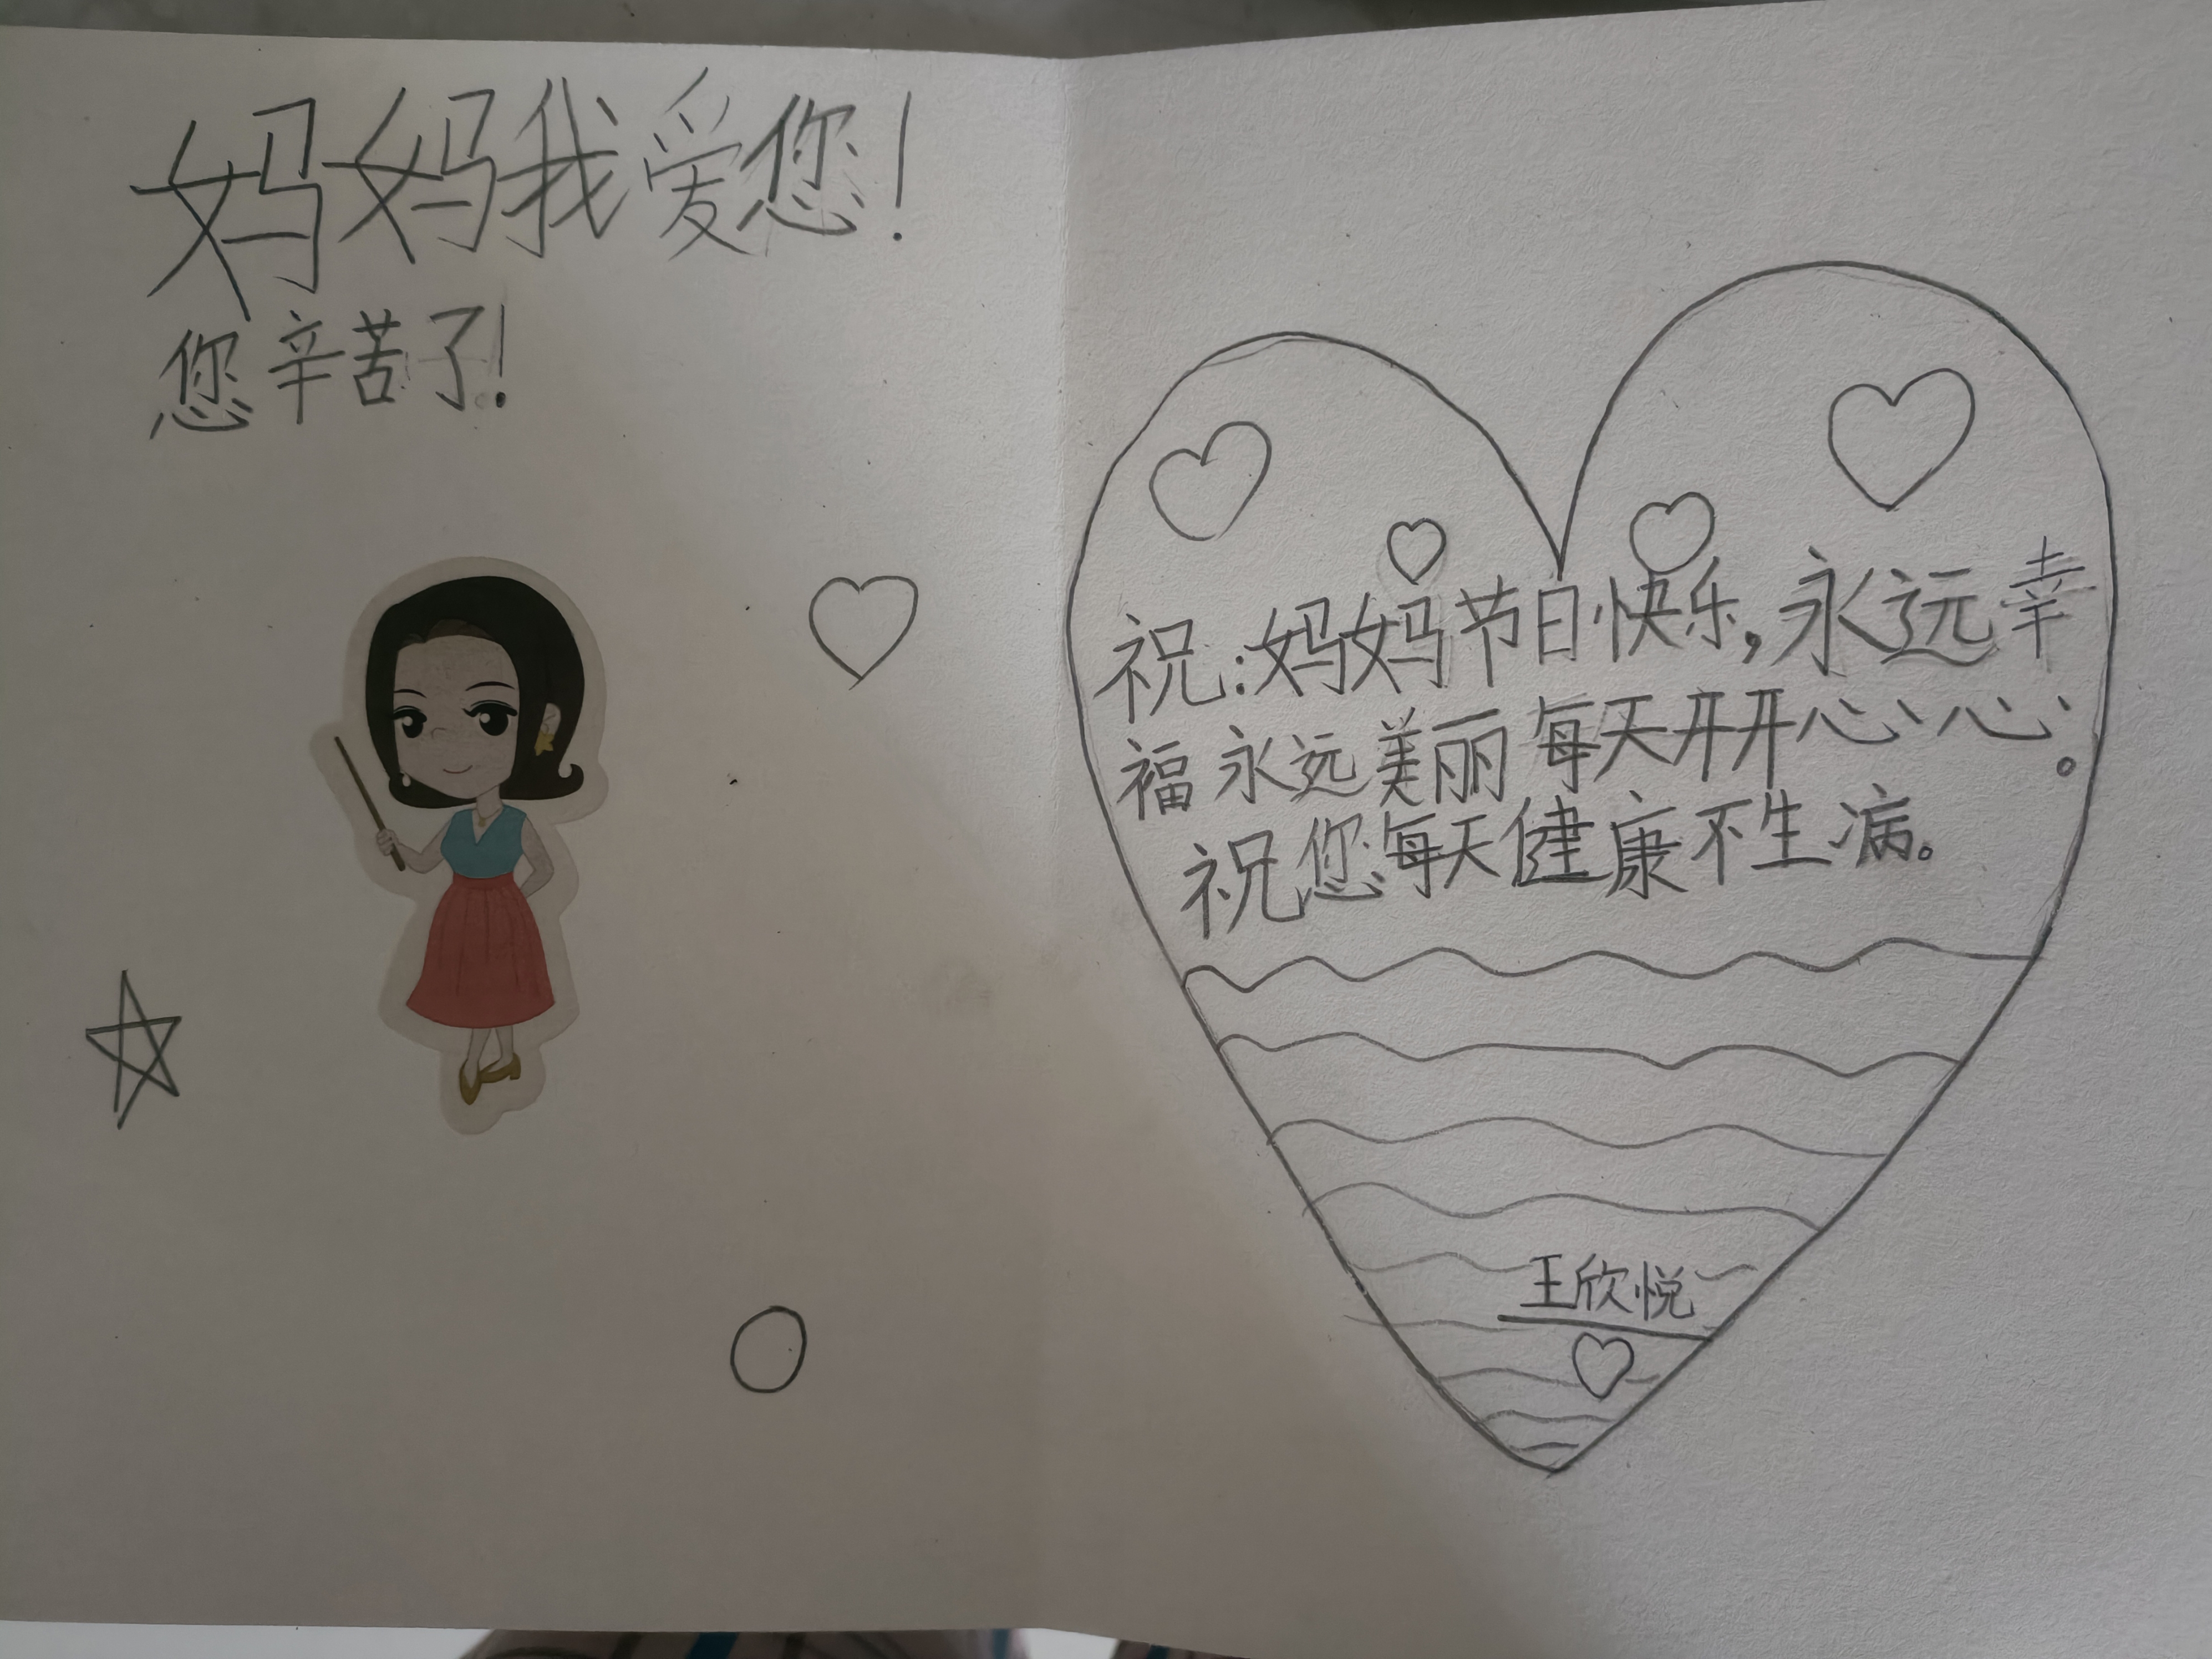 妈妈我爱您！
您辛苦了！
祝：妈妈节日快乐，永远幸
福永远美丽每天开开心心。
祝您每天健康不生病。
王欣悦